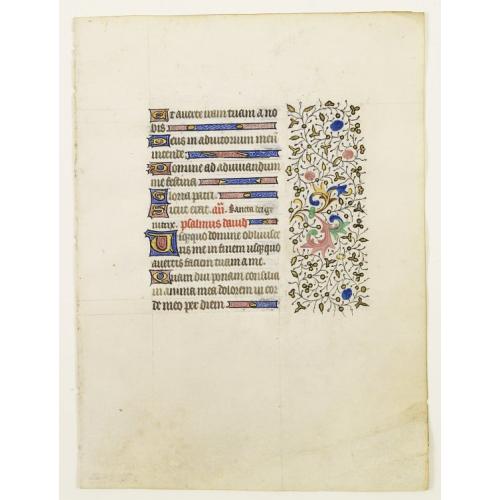 Et averte iram tuam a no
bis
Deus in adiutorium meu
intende
Domine ad adiuvandum
me festina
Gloria patri
Sicut erat. an. Sancta dei ge
nitrix. psalmus david
Usquequo domine obliuisce
ris me in finem usquequo
avertis faciem tuam a me.
Quam diu ponam consilia
in anima mea dolorem in cor
de meo per diem